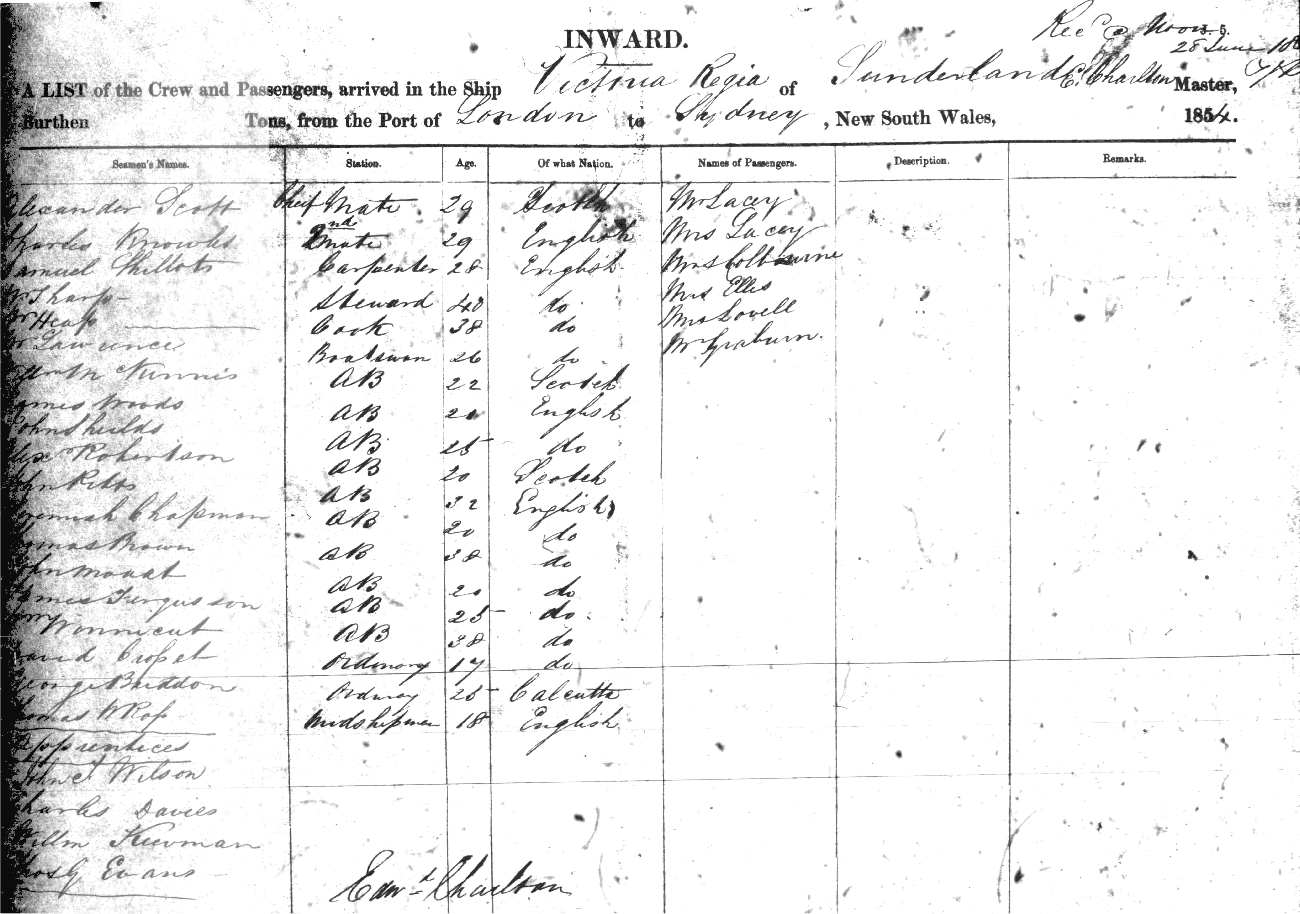 INWARD.
Rec'd @ Noon 28 June
A LIST of the Crew and Passengers, arrived in the Ship Victoria Regia of Sunderland E. Charlton Master,
Burthen Tons, from the Port of London to Sydney, New South Wales, 1854.
Seamen's Names. Station. Age. Of what Nation. Names of Passengers. Description. Remarks.
Alexander Scott Chief Mate 29 Scotch Mr Lacey
Charles Knowles 2nd mate 29 English Mrs Lacey
Samuel Phillots Carpenter 28 English Mrs Colbourne
Wm Sharp Steward 48 do Mrs Ellis
Wm Heap Cook 38 do Mrs Lovell
Wm Lawrence Boatswan 26 do Mr Graburn.
McKinnis AB 22 Scotch
James Woods AB English
John Shields AB 25 do
Alex Robertson AB 20 Scotch
John Pitts AB 32 English
Jeremiah Chapman AB 20 do
Thomas Brown AB 38 do
John Mouat AB 20 do
James Fergusson AB 25 do.
Wm Wonnicut AB 38 do
David Ordinary 17 do
George Ordinary 25 Calcutta
Thomas W Rop Midshipman 18 English
Apprentices
Wilson
Charles Davies
Willm
Thos G Evans
Edwd Charlton